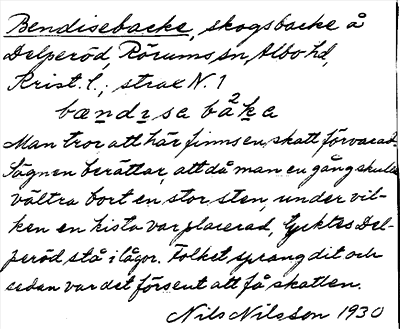 Bendisebacke, skogsbacke å
Delperöd, Rörums sn, Albo hd,
Krist. l.; strax N. 1
bændisa bàka
Man tror att här finns en skatt förvarad.
Sägnen berättar, att då man en gång skulle
vältra bort en stor sten, under vil-
ken en kista var placerad, tycktes Del-
peröd stå i lågor. Folket sprang dit och
sedan var det försent att få skatten.
Nils Nilsson 1930